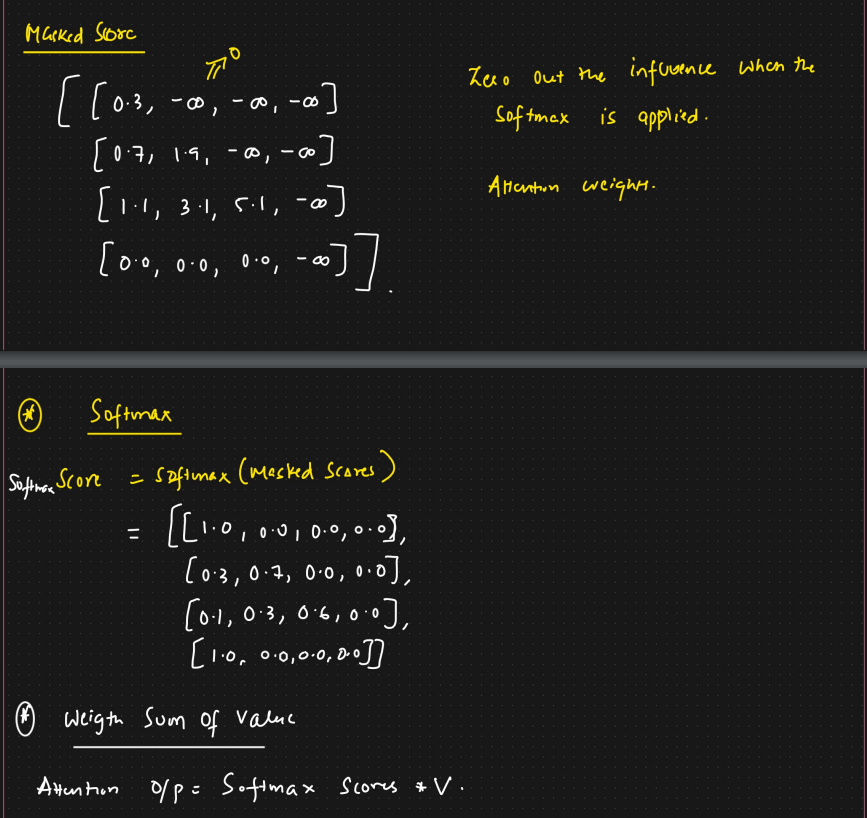 Masked Score
0
[ [0.3, -∞, -∞, -∞]
[0.7, 1.9, -∞, -∞]
[1.1, 3.1, 5.1, -∞]
[0.0, 0.0, 0.0, -∞] ].
Zero out the influence when the
Softmax is applied.
Attention weights.
* Softmax
Softmax Score = Softmax (Masked Scores)
= [[1.0, 0.0, 0.0, 0.0],
[0.3, 0.7, 0.0, 0.0],
[0.1, 0.3, 0.6, 0.0],
[1.0, 0.0, 0.0, 0.0]]
* Weigth Sum of Value
Attention O/p = Softmax Scores * V.